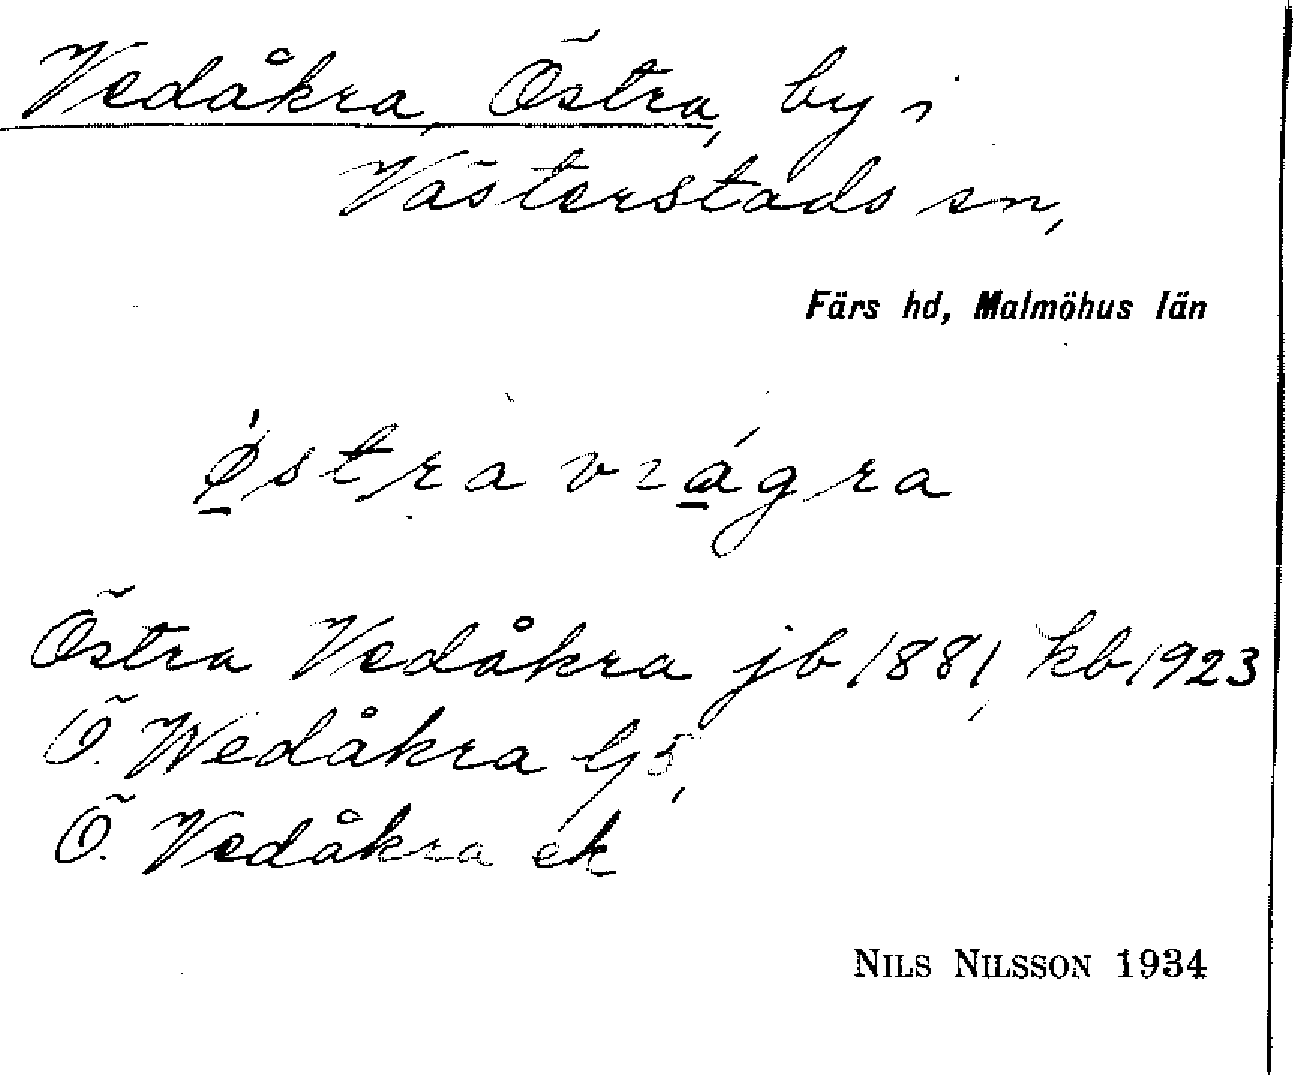 Vedåkra, Östra, by i
Västerstads sn,
Färs hd, Malmöhus län
östra vrågra
Östra Vedåkra jb 1881, kb 1923
Ö. Wedåkra Gj 5,
Ö. Vedåkra ek
NILS NILSSON 1934